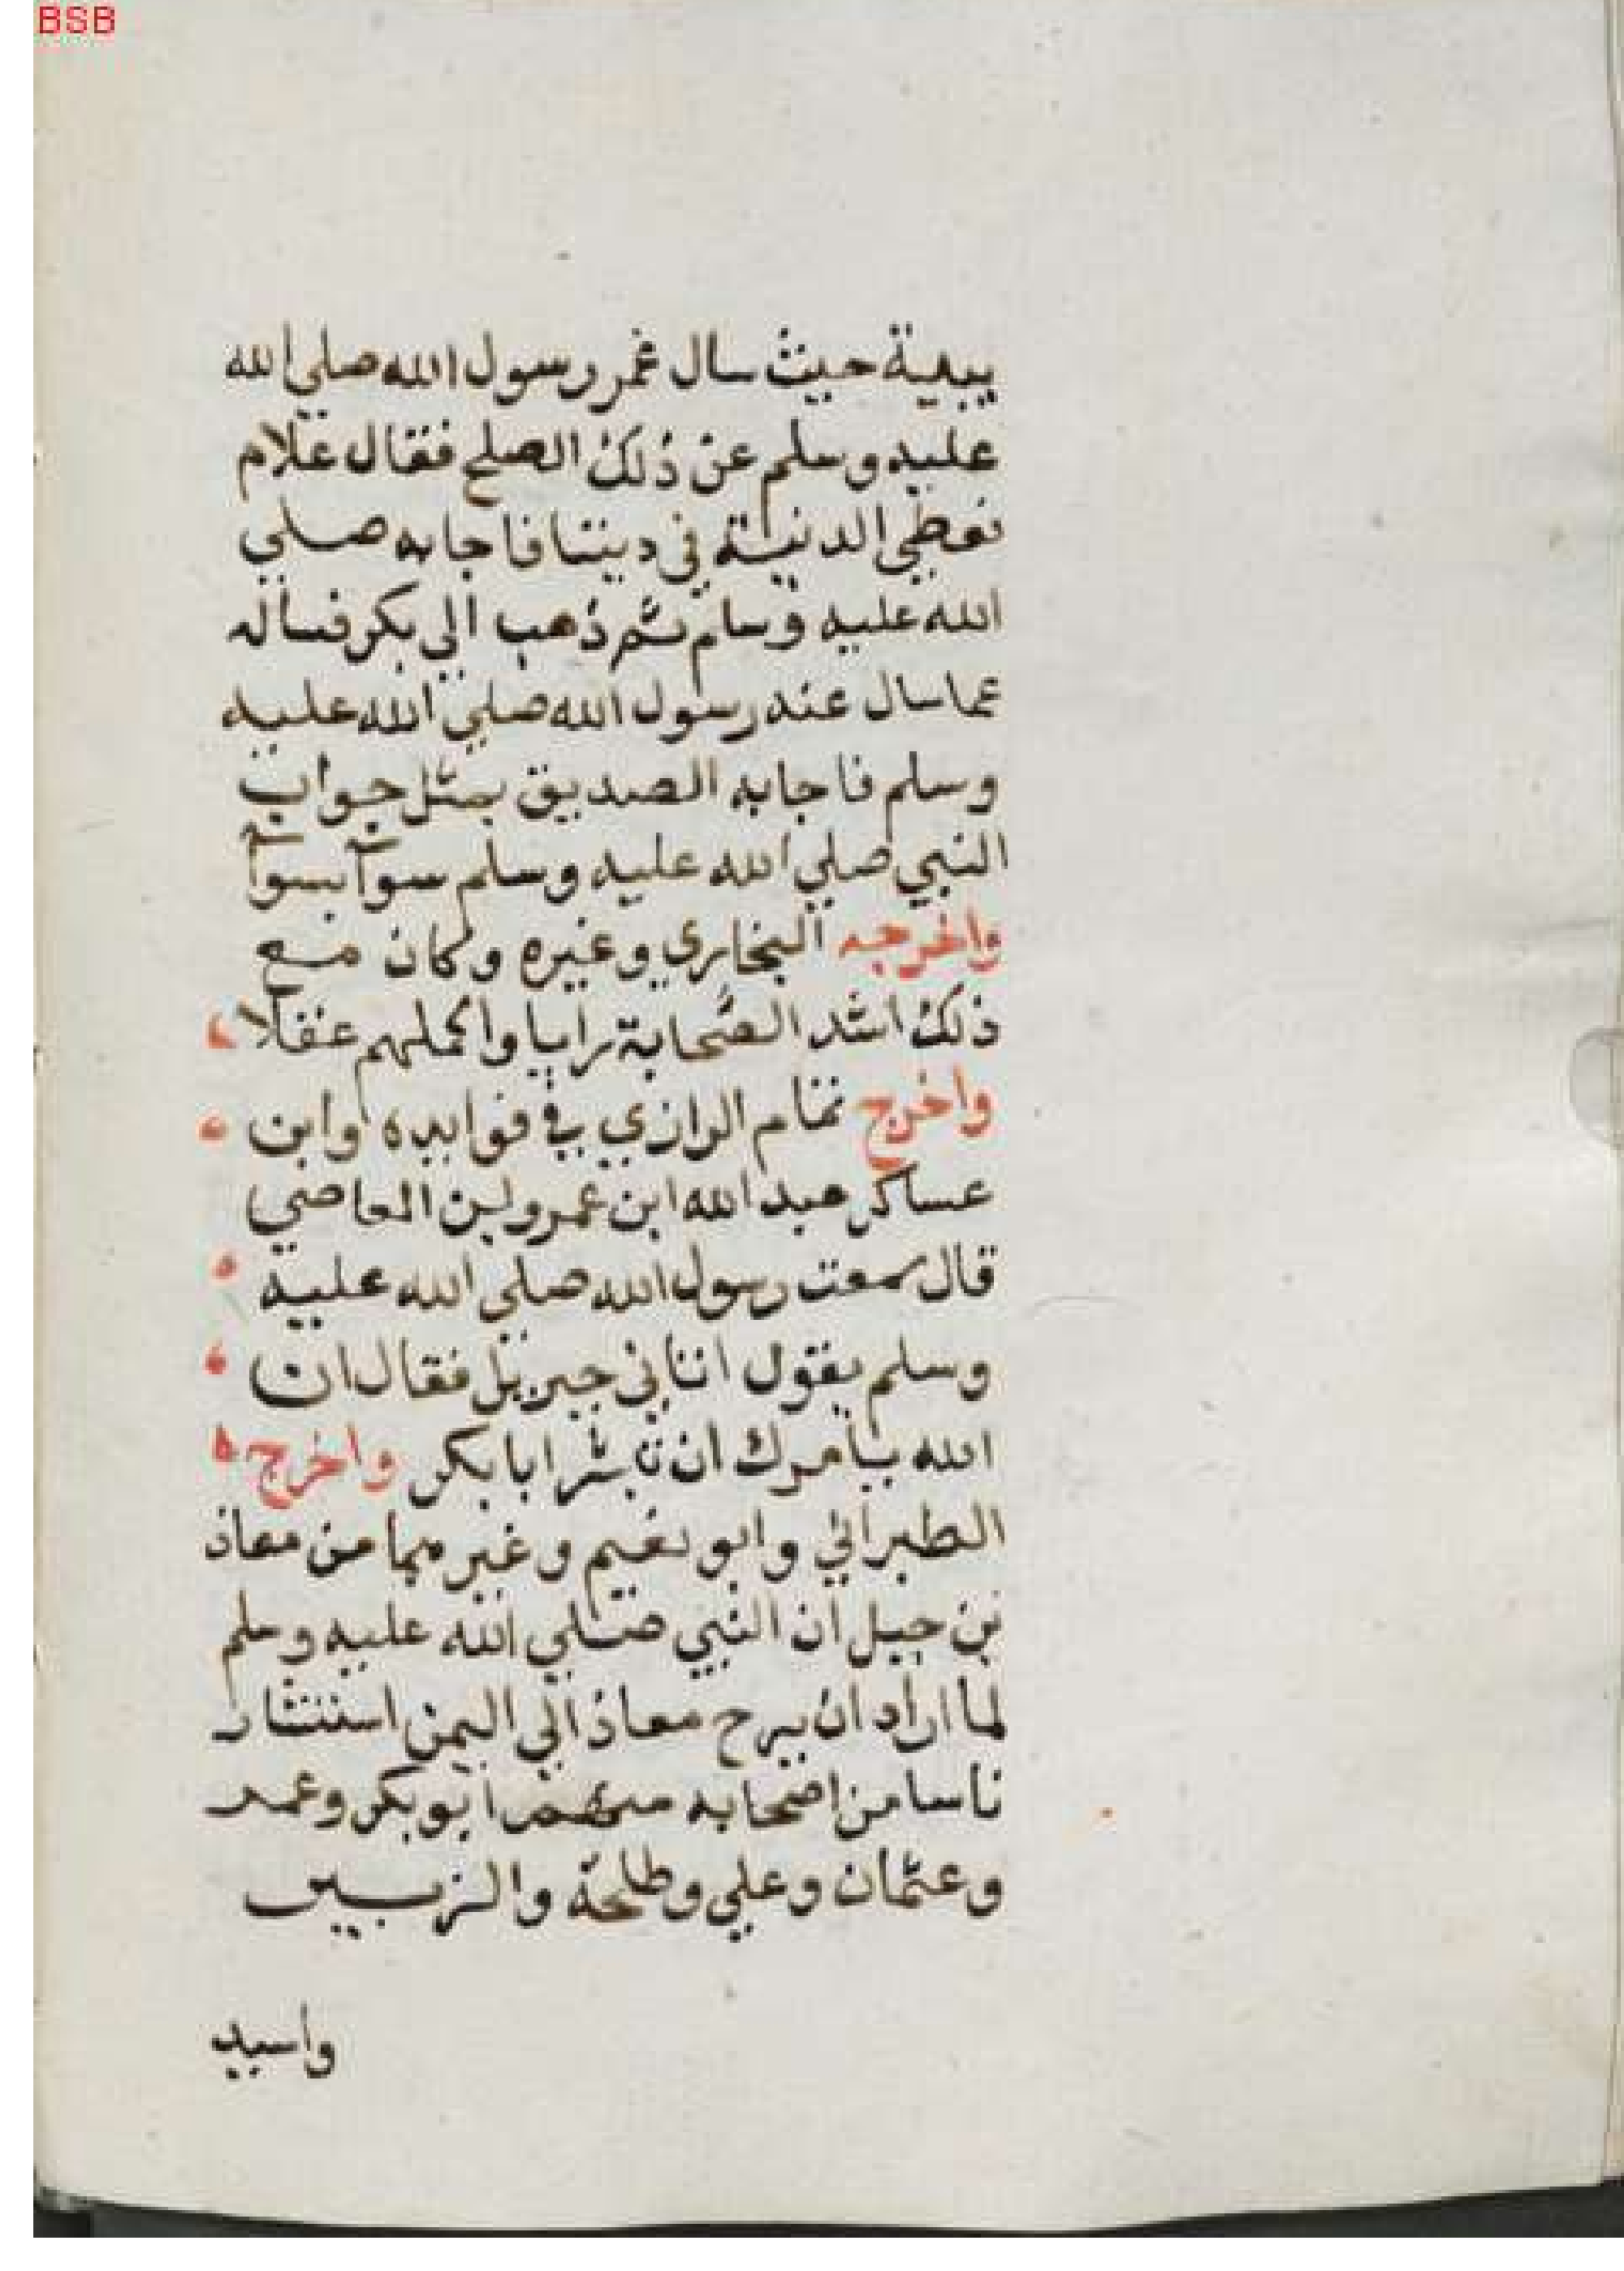 BSB
يبية حيث سال عمر رسول الله صلي الله
عليه وسلم عن ذلك الصلح فقال علام
نعطي الدنية في ديننا فاجابه صلي
الله عليه وسلم ثم ذهب الي بكر فساله
عما سال عنه رسول الله صلي الله عليه
وسلم فاجابه الصديق بمثل جواب
النبي صلي الله عليه وسلم سوآ بسوآ
واخرجه البخاري وغيره وكان مع
ذلك اشد الصحابة رايا واكملهم عقلا
واخرج تمام الرازي في فوايده وابن
عساكر عبد الله ابن عمرو بن العاصي
قال سمعت رسول الله صلي الله عليه
وسلم يقول اتاني جبريل فقال ان
الله يامرك ان ابا بكر واخرج
الطبراني وابو نعيم وغيرهما من معاذ
بن جبل ان النبي صلي الله عليه وسلم
لما اراد ان يسرح معاذ الي اليمن استشار
ناسا من اصحابه منهم ابو بكر وعمر
وعثمان وعلي وطلحة والزبير
واسيد